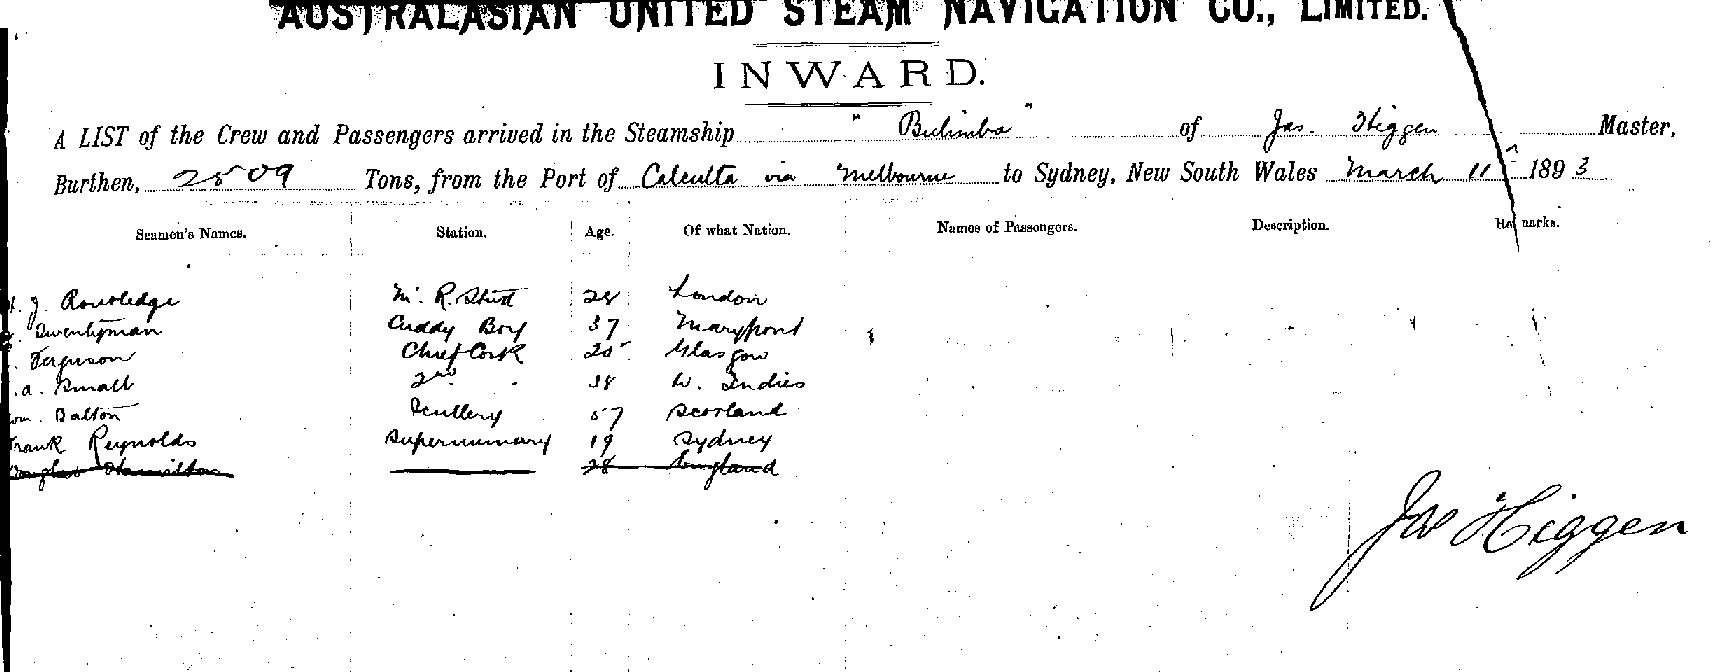 AUSTRALASIAN UNITED STEAM NAVIGATION CO., LIMITED.
INWARD.
A LIST of the Crew and Passengers arrived in the Steamship "Bulimba" of Jas. Higgen Master,
Burthen, 2509 Tons, from the Port of Calcutta via Melbourne to Sydney, New South Wales March 11th 1893
Seamen's Names. Station. Age. Of what Nation. Names of Passengers. Description. Remarks.
J. Routledge M. R. Stwd 28 London
Twentyman Cuddy Boy 37 Maryport
Ferguson Chief Cook 25 Glasgow
A. Small 2nd " 38 W. Indies
Wm. Dalton Scullery 57 Scotland
Frank Reynolds Supernumary 19 Sydney
Douglas Hamilton 28 England
Jas Higgen